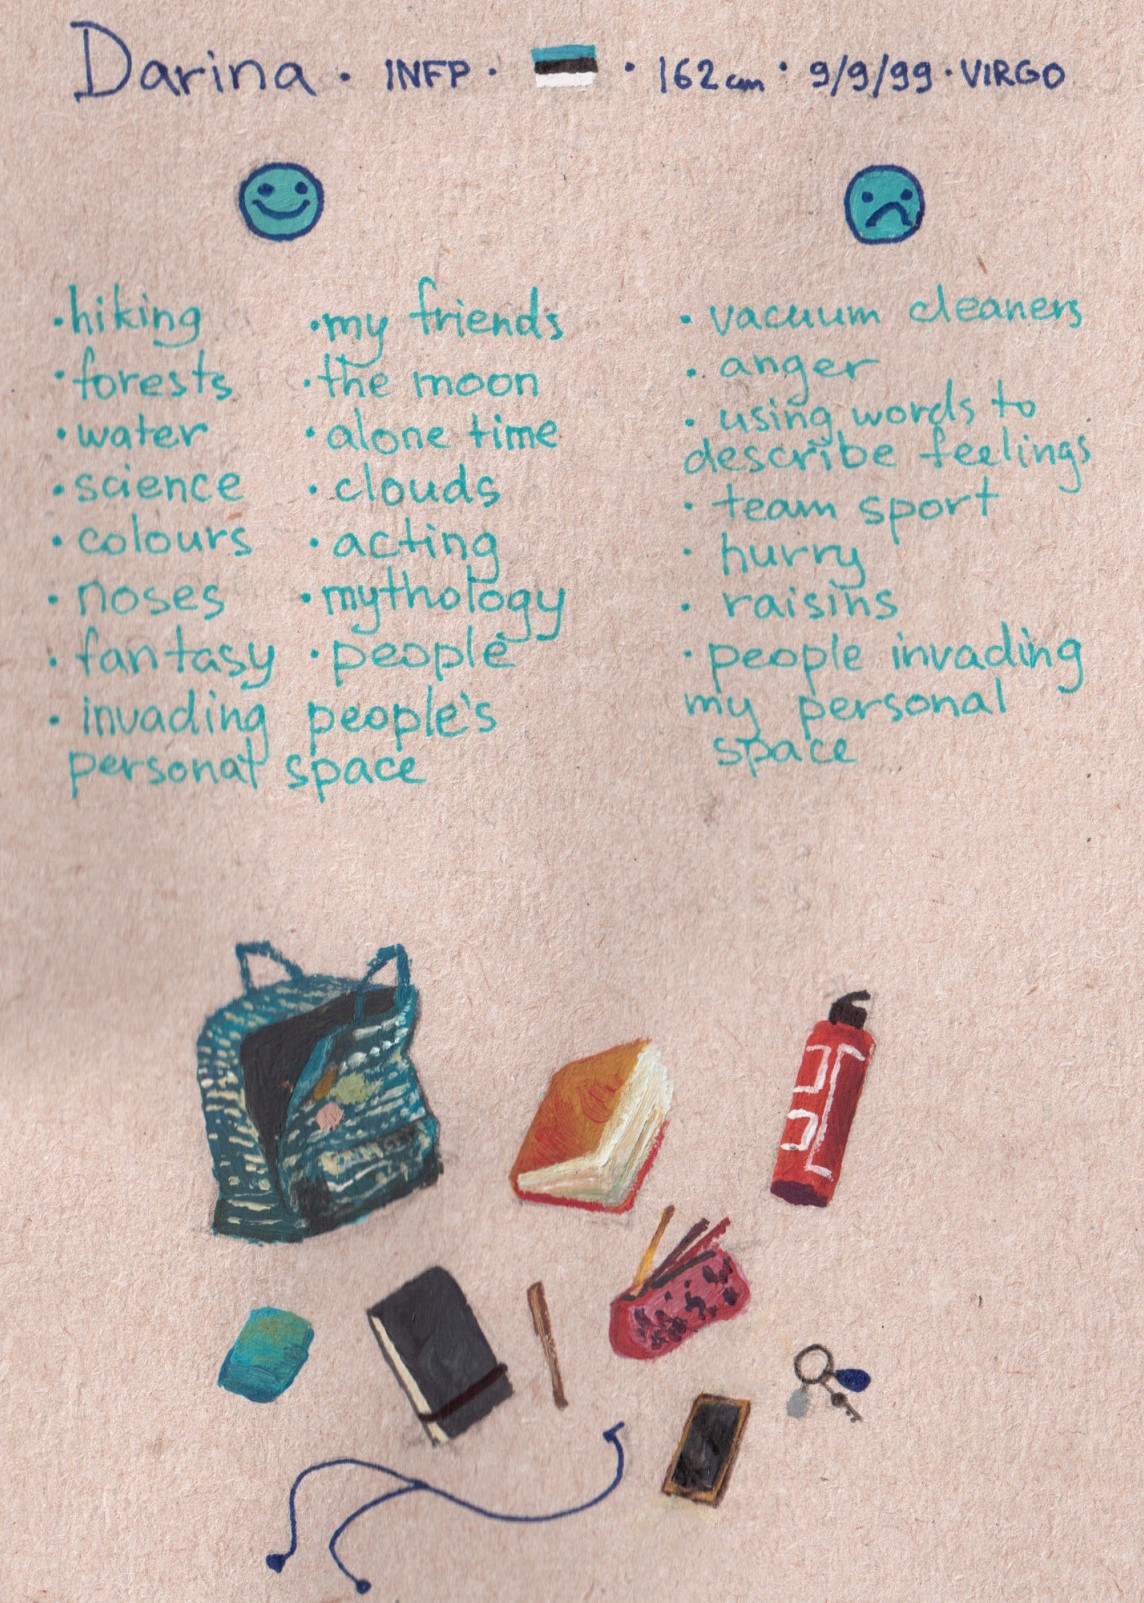 Darina · INFP · · 162 cm · 9/9/99 · VIRGO
· hiking
· forests
· water
· science
· colours
· noses
· fantasy
· invading people's
personal space
· my friends
· the moon
· alone time
· clouds
· acting
· mythology
· people
· vacuum cleaners
· anger
· using words to
describe feelings
· team sport
· hurry
· raisins
· people invading
my personal
space